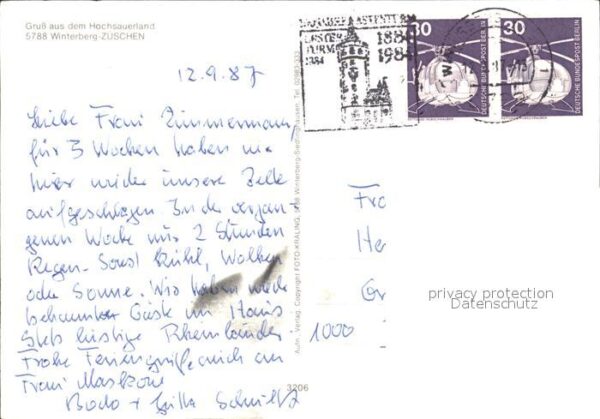 Gruß aus dem Hochsauerland
5788 Winterberg-ZÜSCHEN
12.9.87
Liebe Frau Zimmermann,
für 3 Wochen haben wir
hier wieder unsere Zelte
aufgeschlagen. In der vergan-
genen Woche nur 2 Stunden
Regen. Sonst kühl, Wolken
oder Sonne. Wir haben wieder
bekannte Gäste im Haus
stets lustige Rheinländer
Frohe Feriengrüße auch an
Frau
Bodo + Schmitz
Aufn. Verlag. Copyright FOTO-KRALING, 5788 Winterberg-Siedlinghausen, Tel. 02983-333
3206
1884
1984
30
DEUTSCHE BUNDESPOST BERLIN
30
DEUTSCHE BUNDESPOST BERLIN
Fra
He
1000
privacy protection
Datenschutz